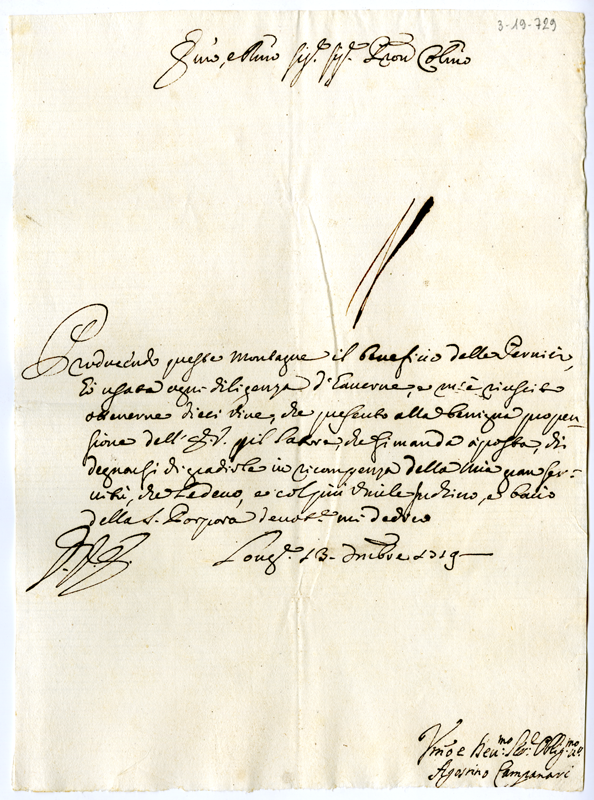 3-19-729
Em̃o, e Rm̃o Sig.r Sig.r Pron Colm̃o
Producendo queste Montagne il beneficio delle Pernici,
hò usata ogni diligenza d'hauerne, e m'è riuscito
ottenerne dieci vive, che presento alla benigna propen-
sione dell' E.V. p il latore, che si manda à posta, di
degnarsi di gradirle in ricompenza della mia gran ser-
uitù, che le deuo, e col più umile inchino, e bacio
della S. Porpora deuot.e mi dedico
Long.o 13. Xmbre 1719
Vm̃o e Deu.mo Ser.e Oblig.mo
Agostino Campanari